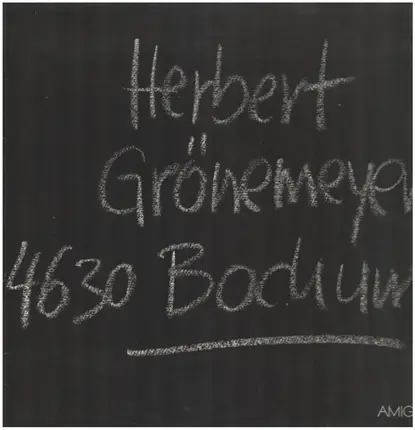 Herbert
Grönemeyer
4630 Bochum
AMIG